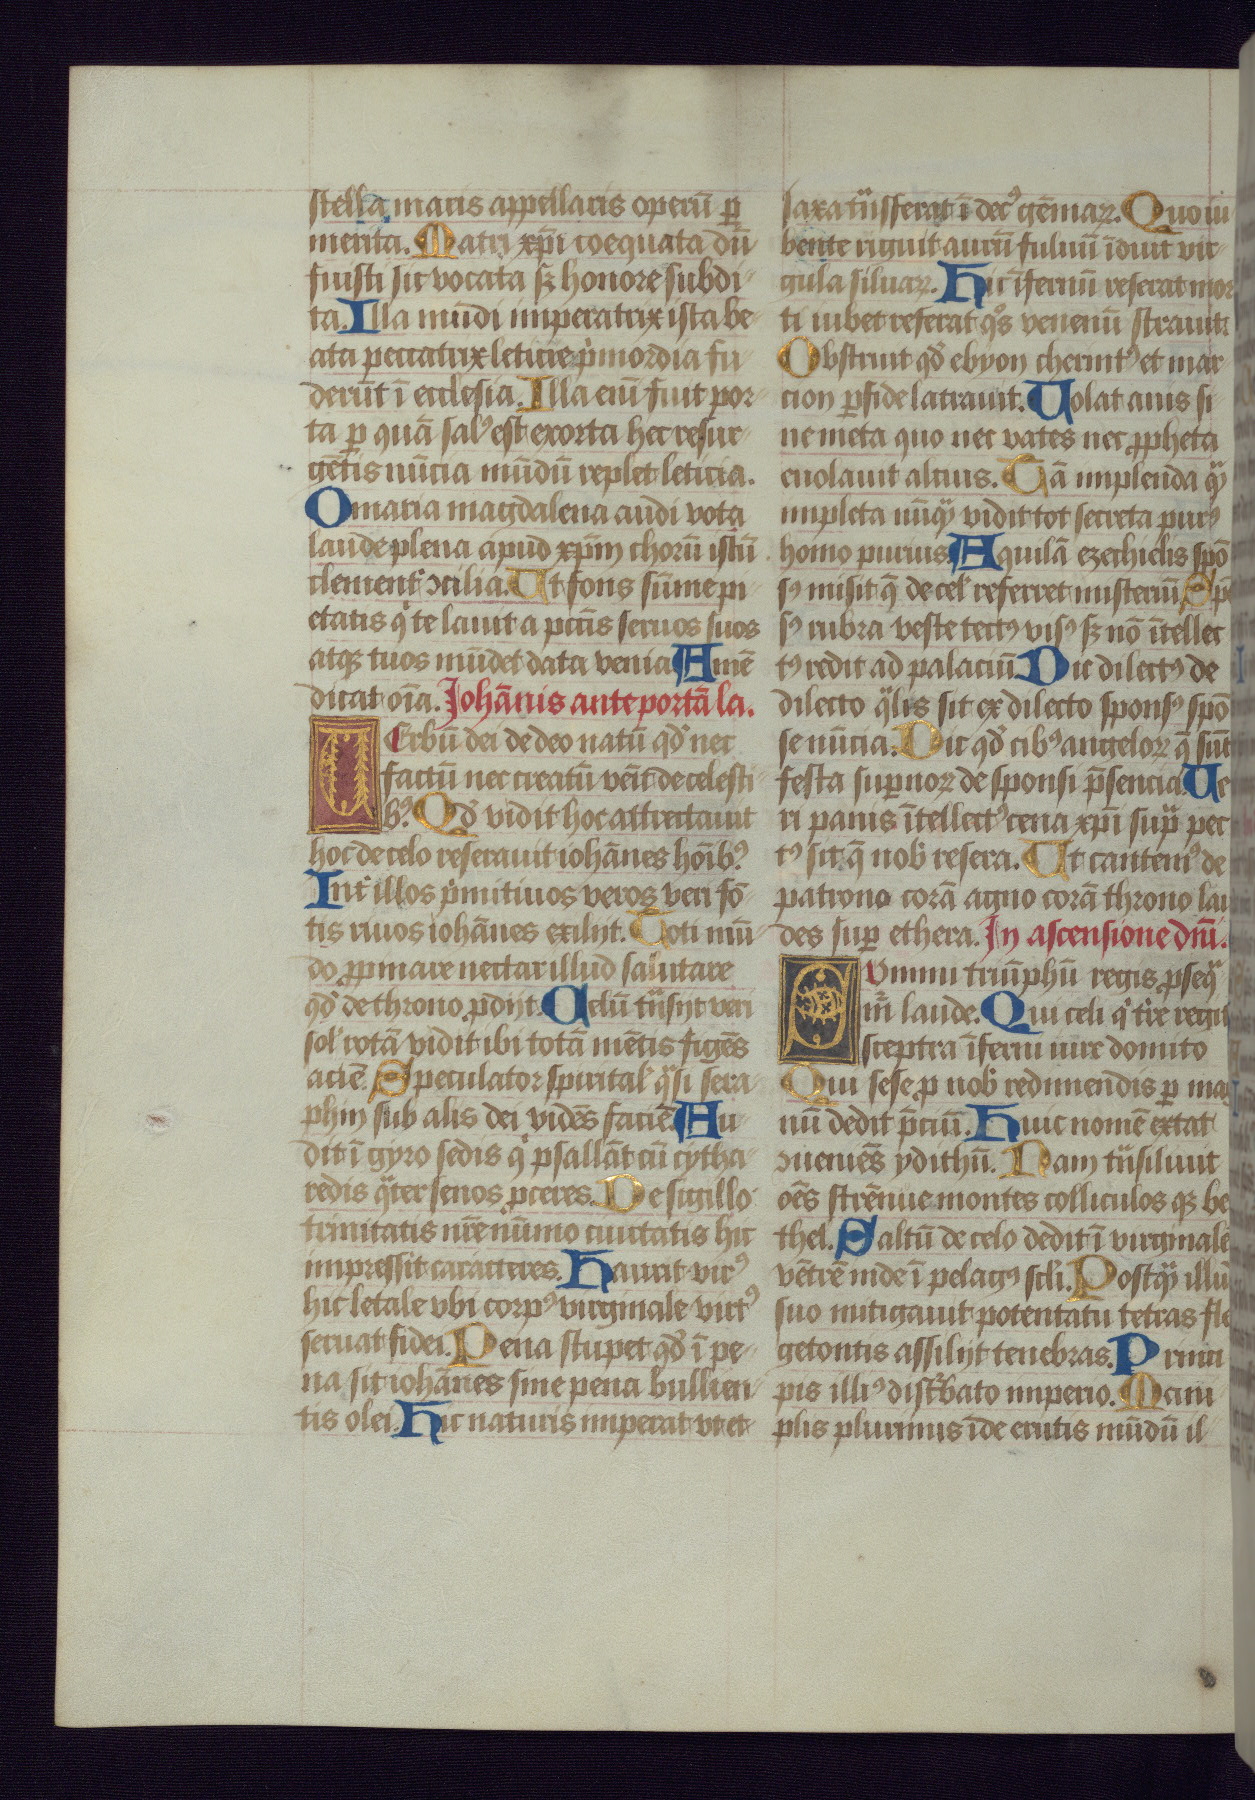 stella maris appellaris operū p̱
merita. Matri xp̄i coequata dū
fuisti sic vocata sꝫ honore subdi
ta. Illa mūdi imperatrix ista be
ata peccatrix leticie p̍mordia fu
derūt ī ecclesia. Illa eni᷑ fuit por
ta p̱ quā salꝰ est exorta hec resur
gētis nūcia mūdū replet leticia.
O maria magdalena audi vota
laude plena apud xp̄m chorū istū
clement᷑ ꝯcilia. Ut fons sūme pi
etatis q̍ te lauit a pctīs seruos suos
atqꝫ tuos mūdet data venia Amē
dicat oīa. Johānis ante portā la.
Verbū dei de deo natū qd̕ nec
factū nec creatū vēit de celesti
bꝰ. Qd̕ vidit hoc attrectauit
hoc de celo reserauit iohānes hoīibꝰ
Int᷑ illos p̍mitiuos veros veri fō
tis riuos iohānes exilijt. Toti mū
do ꝓpinare nectar illud salutare
qd̕ de throno ꝓdijt. Celū trāsijt veri
sol᷑ rotā vidit ibi totā mētis figēs
aciē. Speculator spirital᷑ q̄si sera
phin sub alis dei vidēs faciē. Au
dit ī gyro sedis q̍ psallāt cū cytha
redis q̄ter senos ꝓceres. De sigillo
trinitatis nr̄e nūmo ciuitatis hic
impressit caracteres. Haurit virꝰ
hic letale vbi corpꝰ virginale virtꝰ
seruat fidei. Pena stupet qd̕ ī pe
na sit iohānes sine pena bullien
tis olei. Hic naturis imperat vt et
saxa trāsferat ī decꝰ gēmaꝝ. Quo iu
bente riguit aurū fuluū īduit vir
gula siluaꝝ. Hic īfernū reserat mor
ti iubet referat qͦs venenū strauit
Obstruit qd̕ ebyon cherintꝰ et mar
cion ꝑfide latrauit. Volat auis si
ne meta quo nec vates nec ꝓpheta
euolauit altius. Tā implenda q̄ꝫ
impleta nūq̄ꝫ vidit tot secreta purꝰ
homo purius. Aquilā ezechielis spō
sꝰ misit q̄ de cel᷑ referret misteriū. Spō
sꝰ rubra veste tectꝰ visꝰ sꝫ nō ītellec
tꝰ redit ad palaciū. Dic dilectꝰ de
dilecto q̄lis sit ex dilecto sponsꝰ spō
se nūcia. Dic qd̕ cibꝰ angeloꝝ q̄ sūt
festa suꝑnoꝝ de sponsi p̄sencia. Ve
ri panis ītellectꝰ cena xp̄i sup̄ pec
tꝰ sit q̄ nob̕ resera. Ut cantemꝰ de
patrono corā agno corā throno lau
des suꝑ ethera. In ascensione dn̄i.
Summi triūphū regis ꝓseq̄
m̄r laude. Qui celi q̍ tr̄e regit
sceptra īferni iure domito
Qui sese ꝓ nob̕ redimendis ꝑ mag
nū dedit p̄ciū. Huic nomē extat
ꝯueniēs ydithū. Nam trāsiliuit
oēs strēnue montes colliculos qꝫ be
thel. Saltū de celo dedit ī virginale
vētrē inde ī pelagꝰ scl̄i. Postq̄ꝫ illū
suo mitigauit potentatu tetras fle
getontis assilijt tenebras. Princi
pis illiꝰ distᷓbato imperio. Mani
plis plurimus īde erutis mūdū il